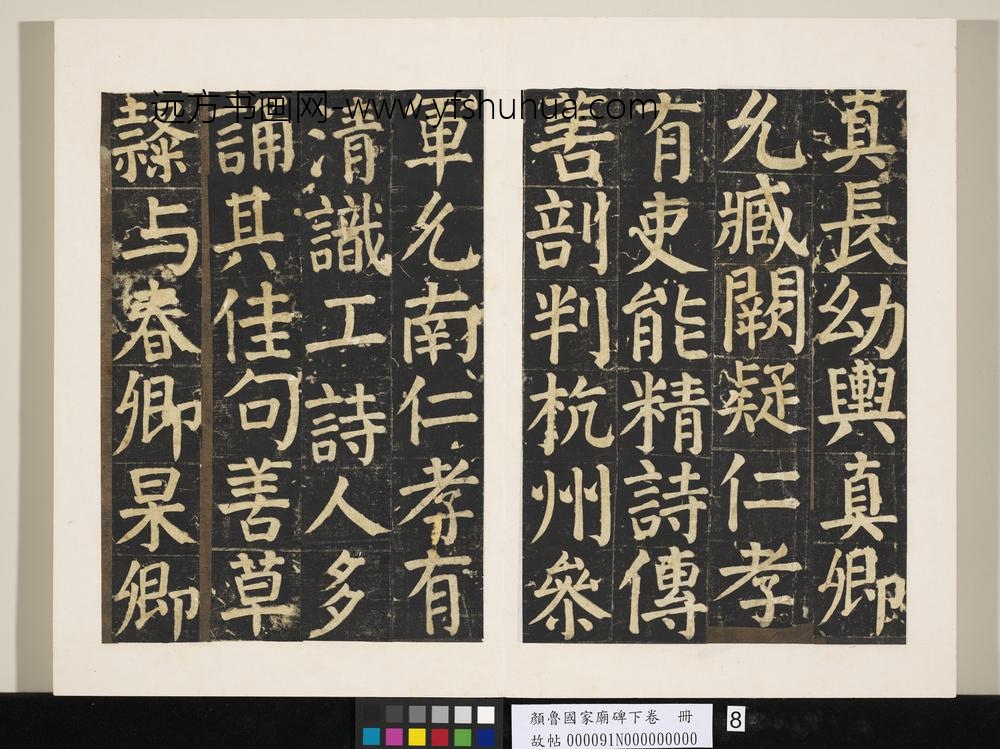 远方书画网-www.yfshuhua.com
真長幼輿真卿
允臧闕疑仁孝
有吏能精詩傳
善剖判杭州叅
軍允南仁孝有
清識工詩人多
誦其佳句善草
隸与春卿杲卿
顏魯國家廟碑下卷 冊
故帖 000091N000000000
8